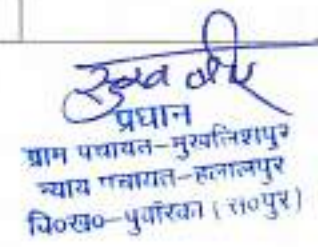 प्रधान
ग्राम पंचायत-मुखलिशपुर
न्याय पंचायत-हलालपुर
वि०ख०-पुवांरका (स०पुर)